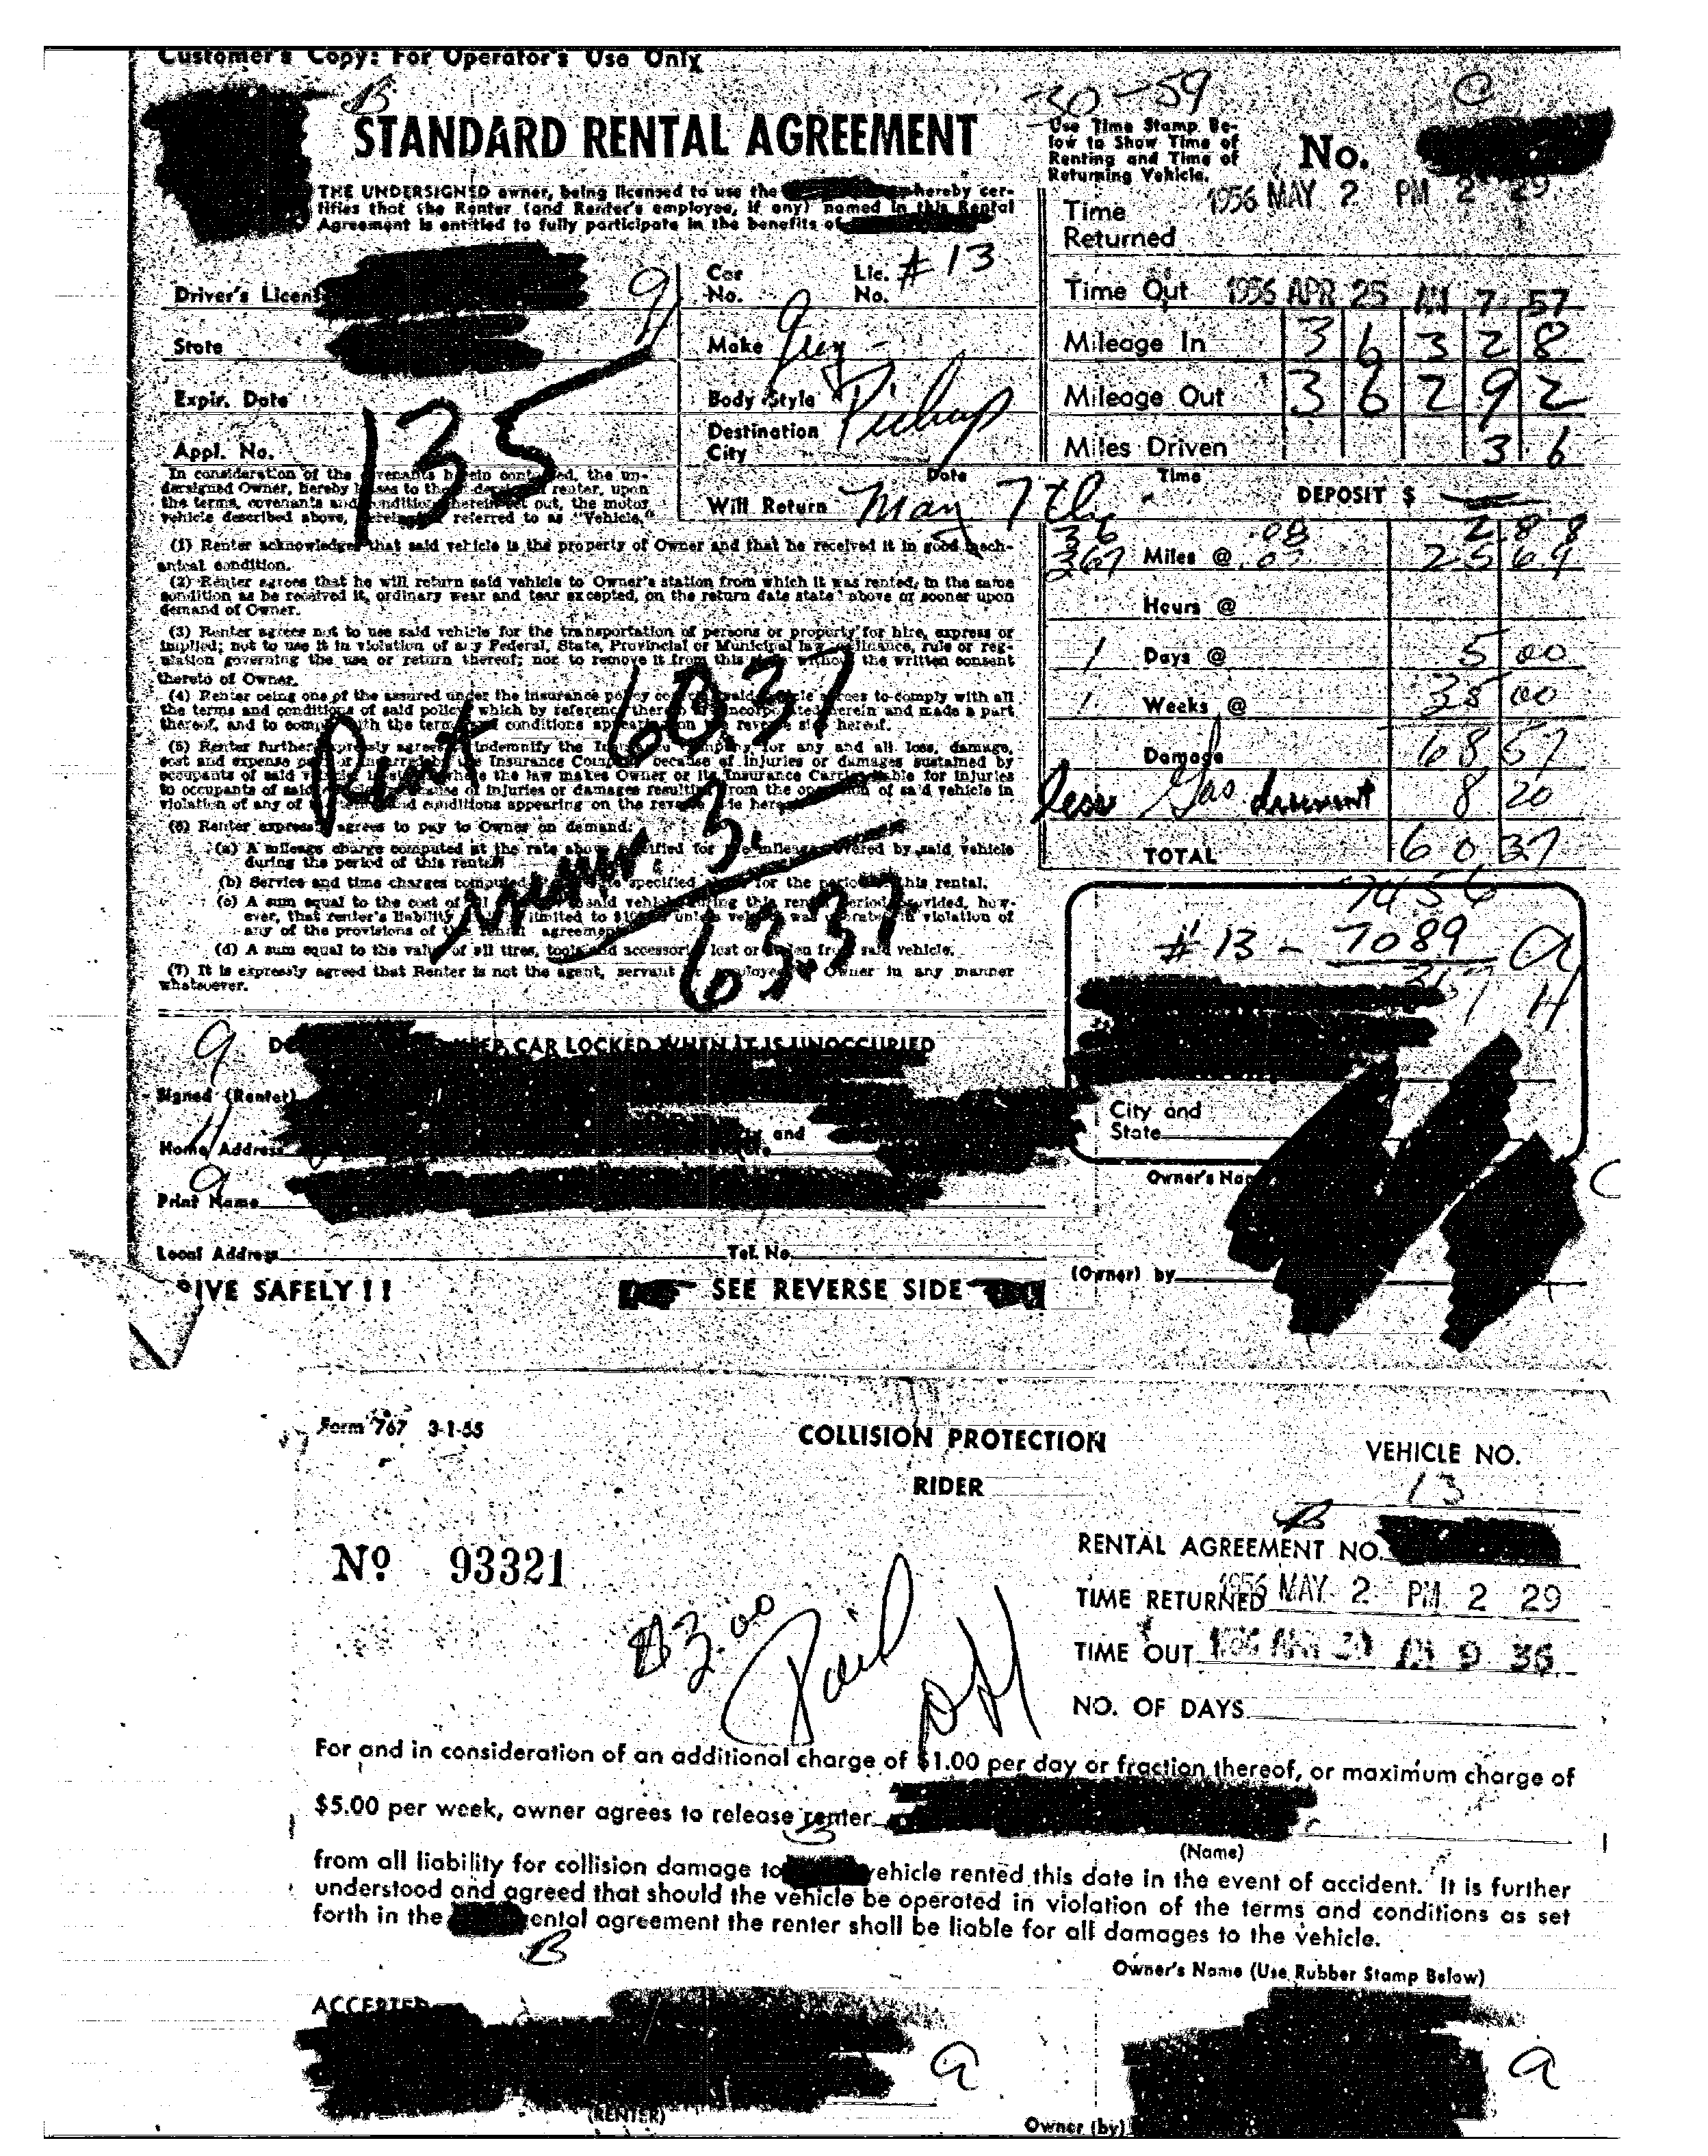 Customer's Copy: For Operator's Use Only
B
30-59
C
STANDARD RENTAL AGREEMENT
Use Time Stamp Be-
low to Show Time of
Renting and Time of
Returning Vehicle.
No.
THE UNDERSIGNED owner, being licensed to use the hereby cer-
tifies that the Renter (and Renter's employee, if any) named in this Rental
Agreement is entitled to fully participate in the benefits of
Time Returned 1956 MAY 2 PM 2 29
Driver's Licens
Car No.
Lic. No. # 13
Time Out 1956 APR 25 AM 7 57
State
Make
Mileage In 3 6 3 2 8
Expir. Date
Body Style Pickup
Mileage Out 3 6 2 9 2
135
Destination City
Appl. No.
Miles Driven 3 6
In consideration of the covenants herein contained, the un-
dersigned Owner, hereby leases to the renter, upon
the terms, covenants and conditions herein set out, the motor
vehicle described above, referred to as "Vehicle."
Date Time
Will Return May 7th
DEPOSIT $
36 .08 2.88
367 Miles @ .07 25 69
Hours @
1 Days @ 5 00
1 Weeks @ 35 00
Damage 68 57
less Gas discount 8 20
TOTAL 60 37
(1) Renter acknowledges that said vehicle is the property of Owner and that he received it in good mech-
anical condition.
(2) Renter agrees that he will return said vehicle to Owner's station from which it was rented, in the same
condition as he received it, ordinary wear and tear excepted, on the return date state above or sooner upon
demand of Owner.
(3) Renter agrees not to use said vehicle for the transportation of persons or property for hire, express or
implied; not to use it in violation of any Federal, State, Provincial or Municipal law, ordinance, rule or reg-
ulation governing the use or return thereof; nor to remove it from this state without the written consent
thereto of Owner.
(4) Renter being one of the assured under the insurance policy said vehicle agrees to comply with all
the terms and conditions of said policy which by reference thereto incorporated herein and made a part
thereof, and to comply with the terms and conditions appearing on the reverse side hereof.
(5) Renter further expressly agrees to indemnify the Insurance Company for any and all loss, damage,
cost and expense because of injuries or damages sustained by
occupants of said vehicle where the law makes Owner or its Insurance Carrier liable for injuries
to occupants of said of injuries or damages resulting from the operation of said vehicle in
violation of any of the conditions appearing on the reverse side hereof.
Rent 60.37
3.
63.37
(6) Renter expressly agrees to pay to Owner on demand:
(a) A mileage charge computed at the rate above specified for the mileage covered by said vehicle
during the period of this rental.
(b) Service and time charges computed specified for the period this rental.
(c) A sum equal to the cost of said vehicle during this rental period provided, how-
ever, that renter's liability limited to unless vehicle was operated in violation of
any of the provisions of this rental agreement
(d) A sum equal to the value of all tires, tools and accessories lost or stolen from said vehicle.
(7) It is expressly agreed that Renter is not the agent, servant or employee Owner in any manner
whatsoever.
7456
# 13 - 7089
367
a
H
KEEP CAR LOCKED WHEN IT IS UNOCCUPIED
Signed (Renter)
Home Address and
Print Name
City and State
Owner's Na
C
Local Address Tel. No.
(Owner) by
IVE SAFELY!!
SEE REVERSE SIDE
Form 767 3-1-55
COLLISION PROTECTION
RIDER
VEHICLE NO.
13
B
RENTAL AGREEMENT NO.
Nº 93321
TIME RETURNED 1956 MAY 2 PM 2 29
$3.00 Paid
TIME OUT 1956 APR 30 AM 9 36
NO. OF DAYS
For and in consideration of an additional charge of $1.00 per day or fraction thereof, or maximum charge of
$5.00 per week, owner agrees to release renter
B
(Name)
from all liability for collision damage to vehicle rented this date in the event of accident. It is further
understood and agreed that should the vehicle be operated in violation of the terms and conditions as set
forth in the rental agreement the renter shall be liable for all damages to the vehicle.
B
Owner's Name (Use Rubber Stamp Below)
ACCEPTED
a
a
(RENTER)
Owner (by)